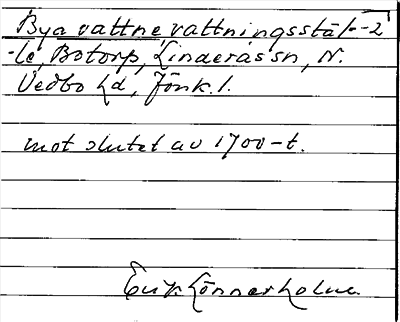 Bya vattne vattningsstäl- -2
-le, Botorp, Linderås sn, N.
Vedbo hd, Jönk. l.
mot slutet av 1700-t.
Erik Lönnerholm